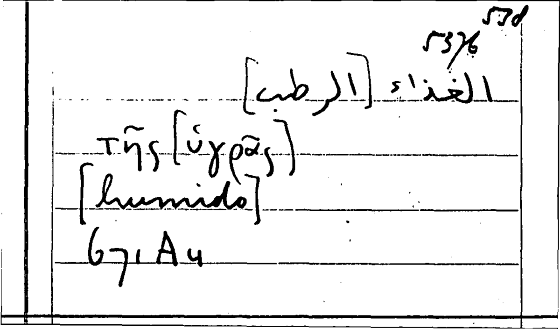 53d
537b
الغذاء [الرطب]
τῆς [ὑγρᾶς]
[humido]
671 A4